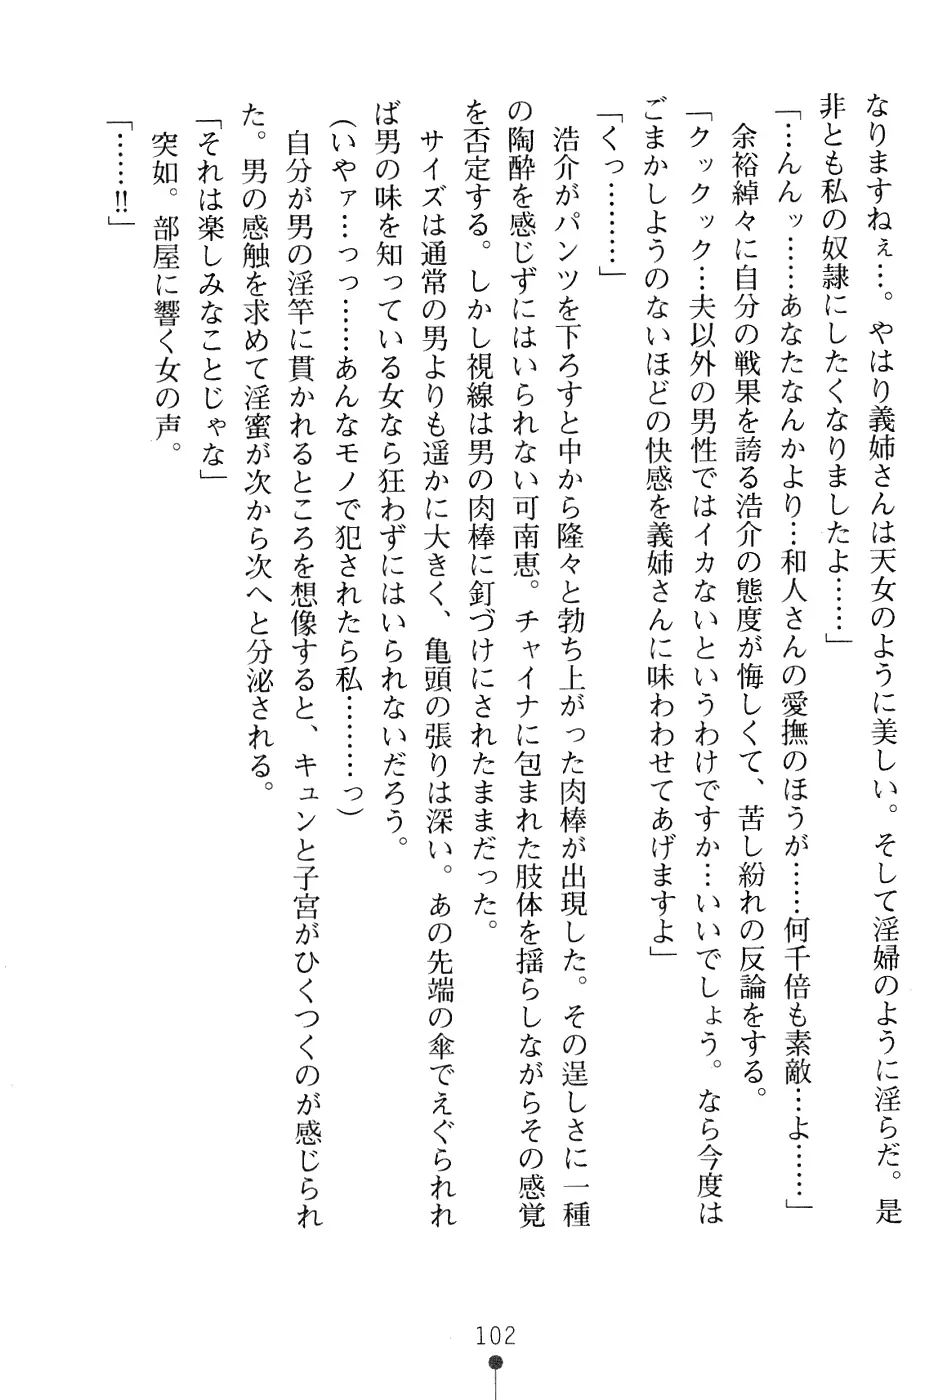 なりますねぇ…。やはり義姉さんは天女のように美しい。そして淫婦のように淫らだ。是
非とも私の奴隷にしたくなりましたよ……」
「…んんッ……あなたなんかより…和人さんの愛撫のほうが……何千倍も素敵…よ……」
余裕綽々に自分の戦果を誇る浩介の態度が悔しくて、苦し紛れの反論をする。
「クックック…夫以外の男性ではイカないというわけですか…いいでしょう。なら今度は
ごまかしようのないほどの快感を義姉さんに味わわせてあげますよ」
「くっ………」
浩介がパンツを下ろすと中から隆々と勃ち上がった肉棒が出現した。その逞しさに一種
の陶酔を感じずにはいられない可南恵。チャイナに包まれた肢体を揺らしながらその感覚
を否定する。しかし視線は男の肉棒に釘づけにされたままだった。
サイズは通常の男よりも遥かに大きく、亀頭の張りは深い。あの先端の傘でえぐられれ
ば男の味を知っている女なら狂わずにはいられないだろう。
(いやァ…っっ……あんなモノで犯されたら私………っ)
自分が男の淫竿に貫かれるところを想像すると、キュンと子宮がひくつくのが感じられ
た。男の感触を求めて淫蜜が次から次へと分泌される。
「それは楽しみなことじゃな」
突如。部屋に響く女の声。
「……!!」
102